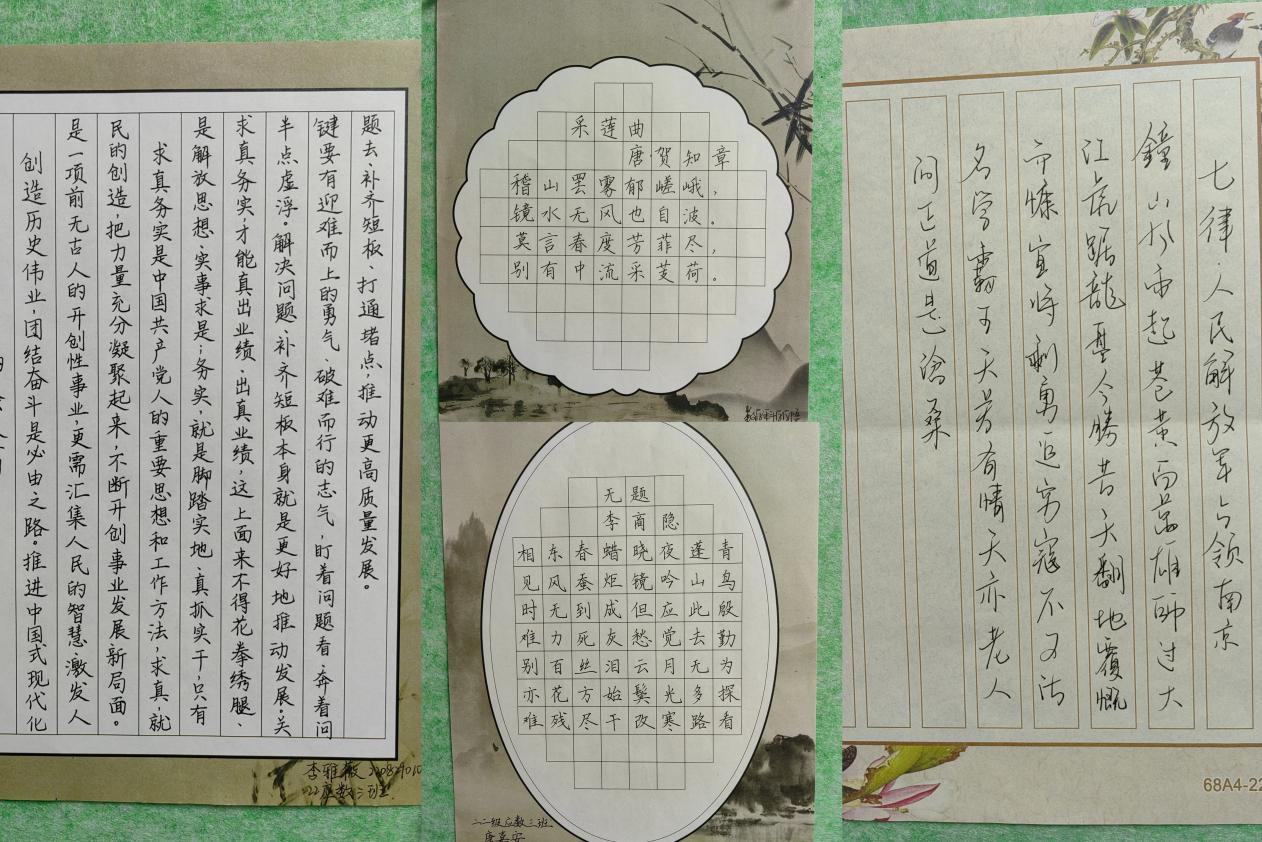 创造历史伟业,团结奋斗是必由之路。推进中国式现代化
是一项前无古人的开创性事业,更需汇集人民的智慧、激发人
民的创造,把力量充分凝聚起来,不断开创事业发展新局面。
求真务实是中国共产党人的重要思想和工作方法,求真,就
是解放思想、实事求是;务实,就是脚踏实地、真抓实干,只有
求真务实,才能真出业绩、出真业绩,这上面来不得花拳绣腿、
半点虚浮。解决问题、补齐短板本身就是更好地推动发展。关
键要有迎难而上的勇气、破难而行的志气,盯着问题看、奔着问
题去、补齐短板、打通堵点,推动更高质量发展。
采莲曲
唐·贺知章
稽山罢雾郁嵯峨,
镜水无风也自波。
莫言春度芳菲尽,
别有中流采芰荷。
无题
李商隐
相见时难别亦难
东风无力百花残
春蚕到死丝方尽
蜡炬成灰泪始干
晓镜但愁云鬓改
夜吟应觉月光寒
蓬山此去无多路
青鸟殷勤为探看
二二级应数三班
七律·人民解放军占领南京
鐘山风雨起苍黄百万雄师过大
江虎踞龍盘今勝昔天翻地覆慨
而慷宜将剩勇追穷寇不可沽
名学霸王天若有情天亦老人
间正道是沧桑
68A4-22